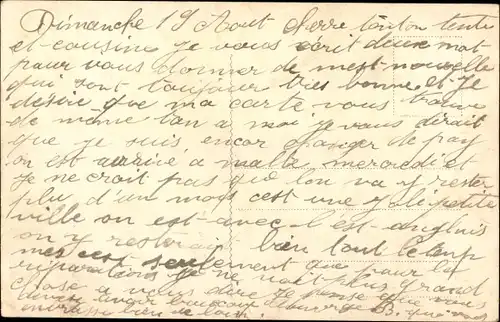 Dimanche 19 Aout cherre tonton tente
et cousine je vous écrit deux mot
pour vous donner de mest nouvelle
qui sont toujour très bonne et je
désire que ma carte vous trouve
de même tan a moi je vous dirait
que je suis encor changer de pay
on est arrivé a malte mercredi et
je ne croit pas que lon va y rester
plu d'un mois cest une petite
ville on est avec l'est anglais
on y resterait bien tout le temp
mes cest seulement que pour la
réparations je ne voit plus grand
chose a vous dire je pense que vous
devez avoir beaucoup
bien de loin